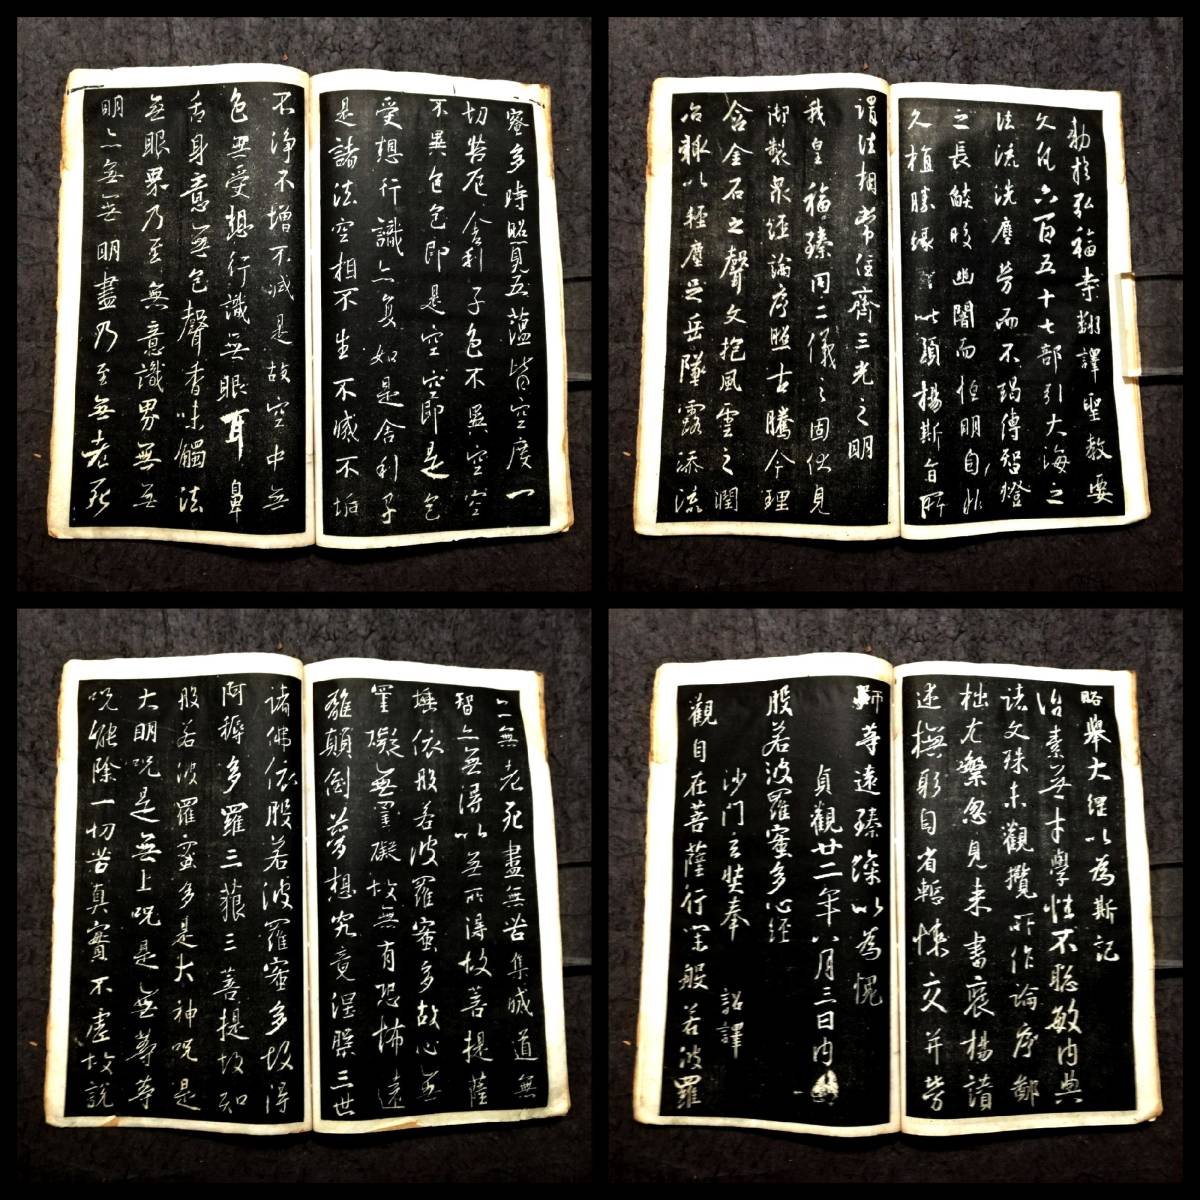 蜜多時照見五蘊皆空度一
切苦厄舍利子色不異空空
不異色色即是空空即是色
受想行識亦復如是舍利子
是諸法空相不生不滅不垢
不淨不增不減是故空中無
色無受想行識無眼耳鼻
舌身意無色聲香味觸法
無眼界乃至無意識界無無
明亦無無明盡乃至無老死
勅於弘福寺翻譯聖教要
文凡六百五十七部引大海之
法流洗塵勞而不竭傳智燈
之長燄皎幽闇而恒明自非
久植勝緣以顯揚斯旨所
謂法相常住齊三光之明
我皇福臻同二儀之固伏見
御製眾經論序照古騰今理
含金石之聲文抱風雲之潤
治輒以輕塵足岳墜露添流
亦無老死盡無苦集滅道無
智亦無得以無所得故菩提薩
埵依般若波羅蜜多故心無
罣礙無罣礙故無有恐怖遠
離顛倒夢想究竟涅槃三世
諸佛依般若波羅蜜多故得
阿耨多羅三藐三菩提故知
般若波羅蜜多是大神呪是
大明呪是無上呪是無等等
呪能除一切苦真實不虛故說
略舉大綱以為斯記
治素無才學性不聰敏內典
諸文殊未觀攬所作論序鄙
拙尤繁忽見來書褒揚讚
述撫躬自省慙悚交并勞
師等遠臻深以為愧
貞觀廿二年八月三日內
般若波羅蜜多心經
沙門玄奘奉 詔譯
觀自在菩薩行深般若波羅